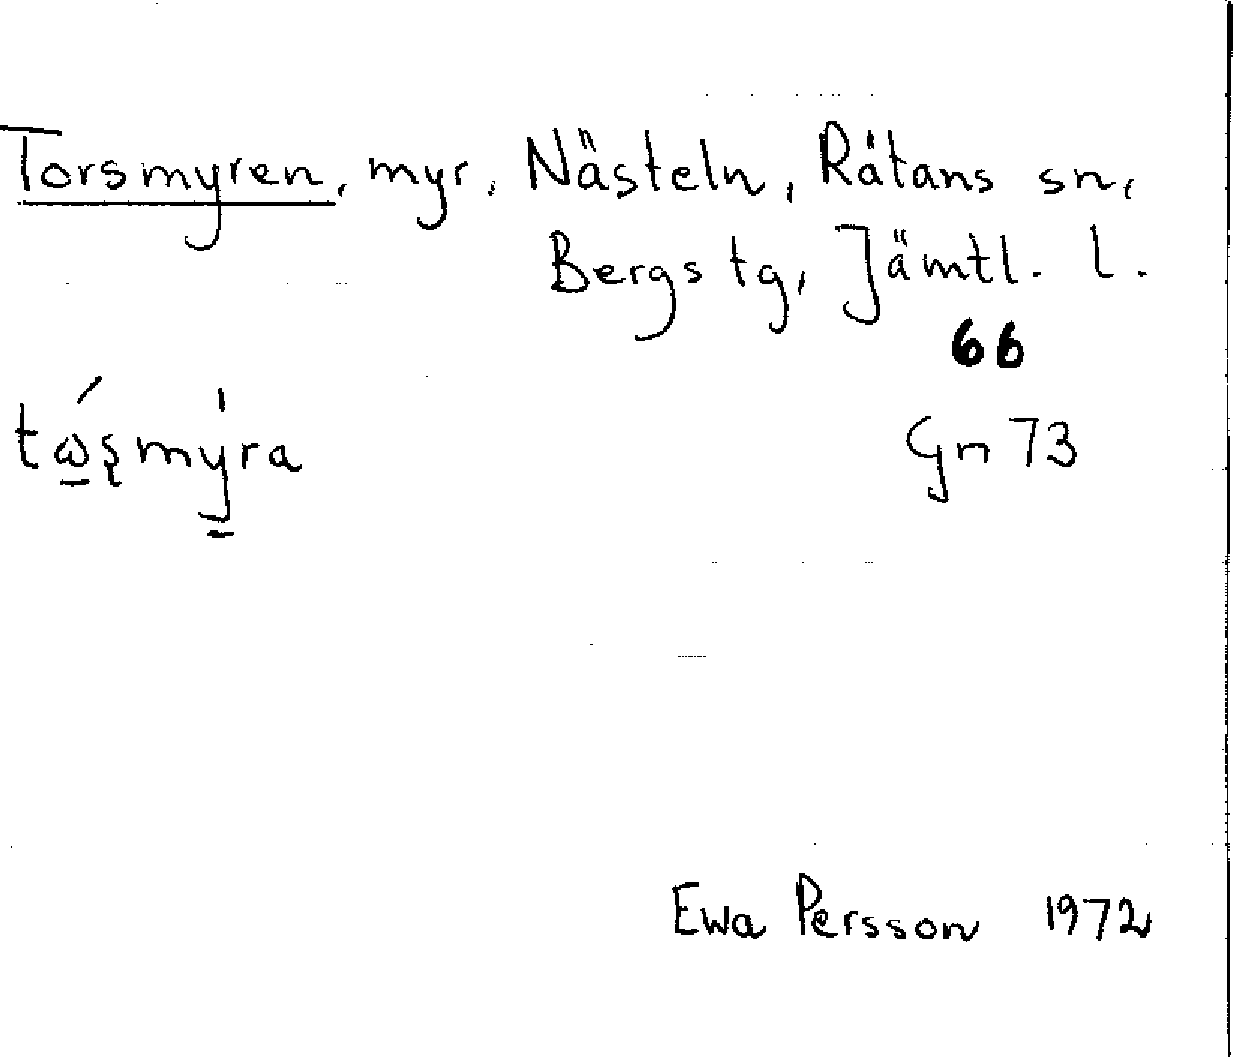 Torsmyren, myr, Nästeln, Råtans sn,
Bergs tg, Jämtl. l.
66
tώ̱ʂmy̱̍ra
Gn 73
Ewa Persson 1972